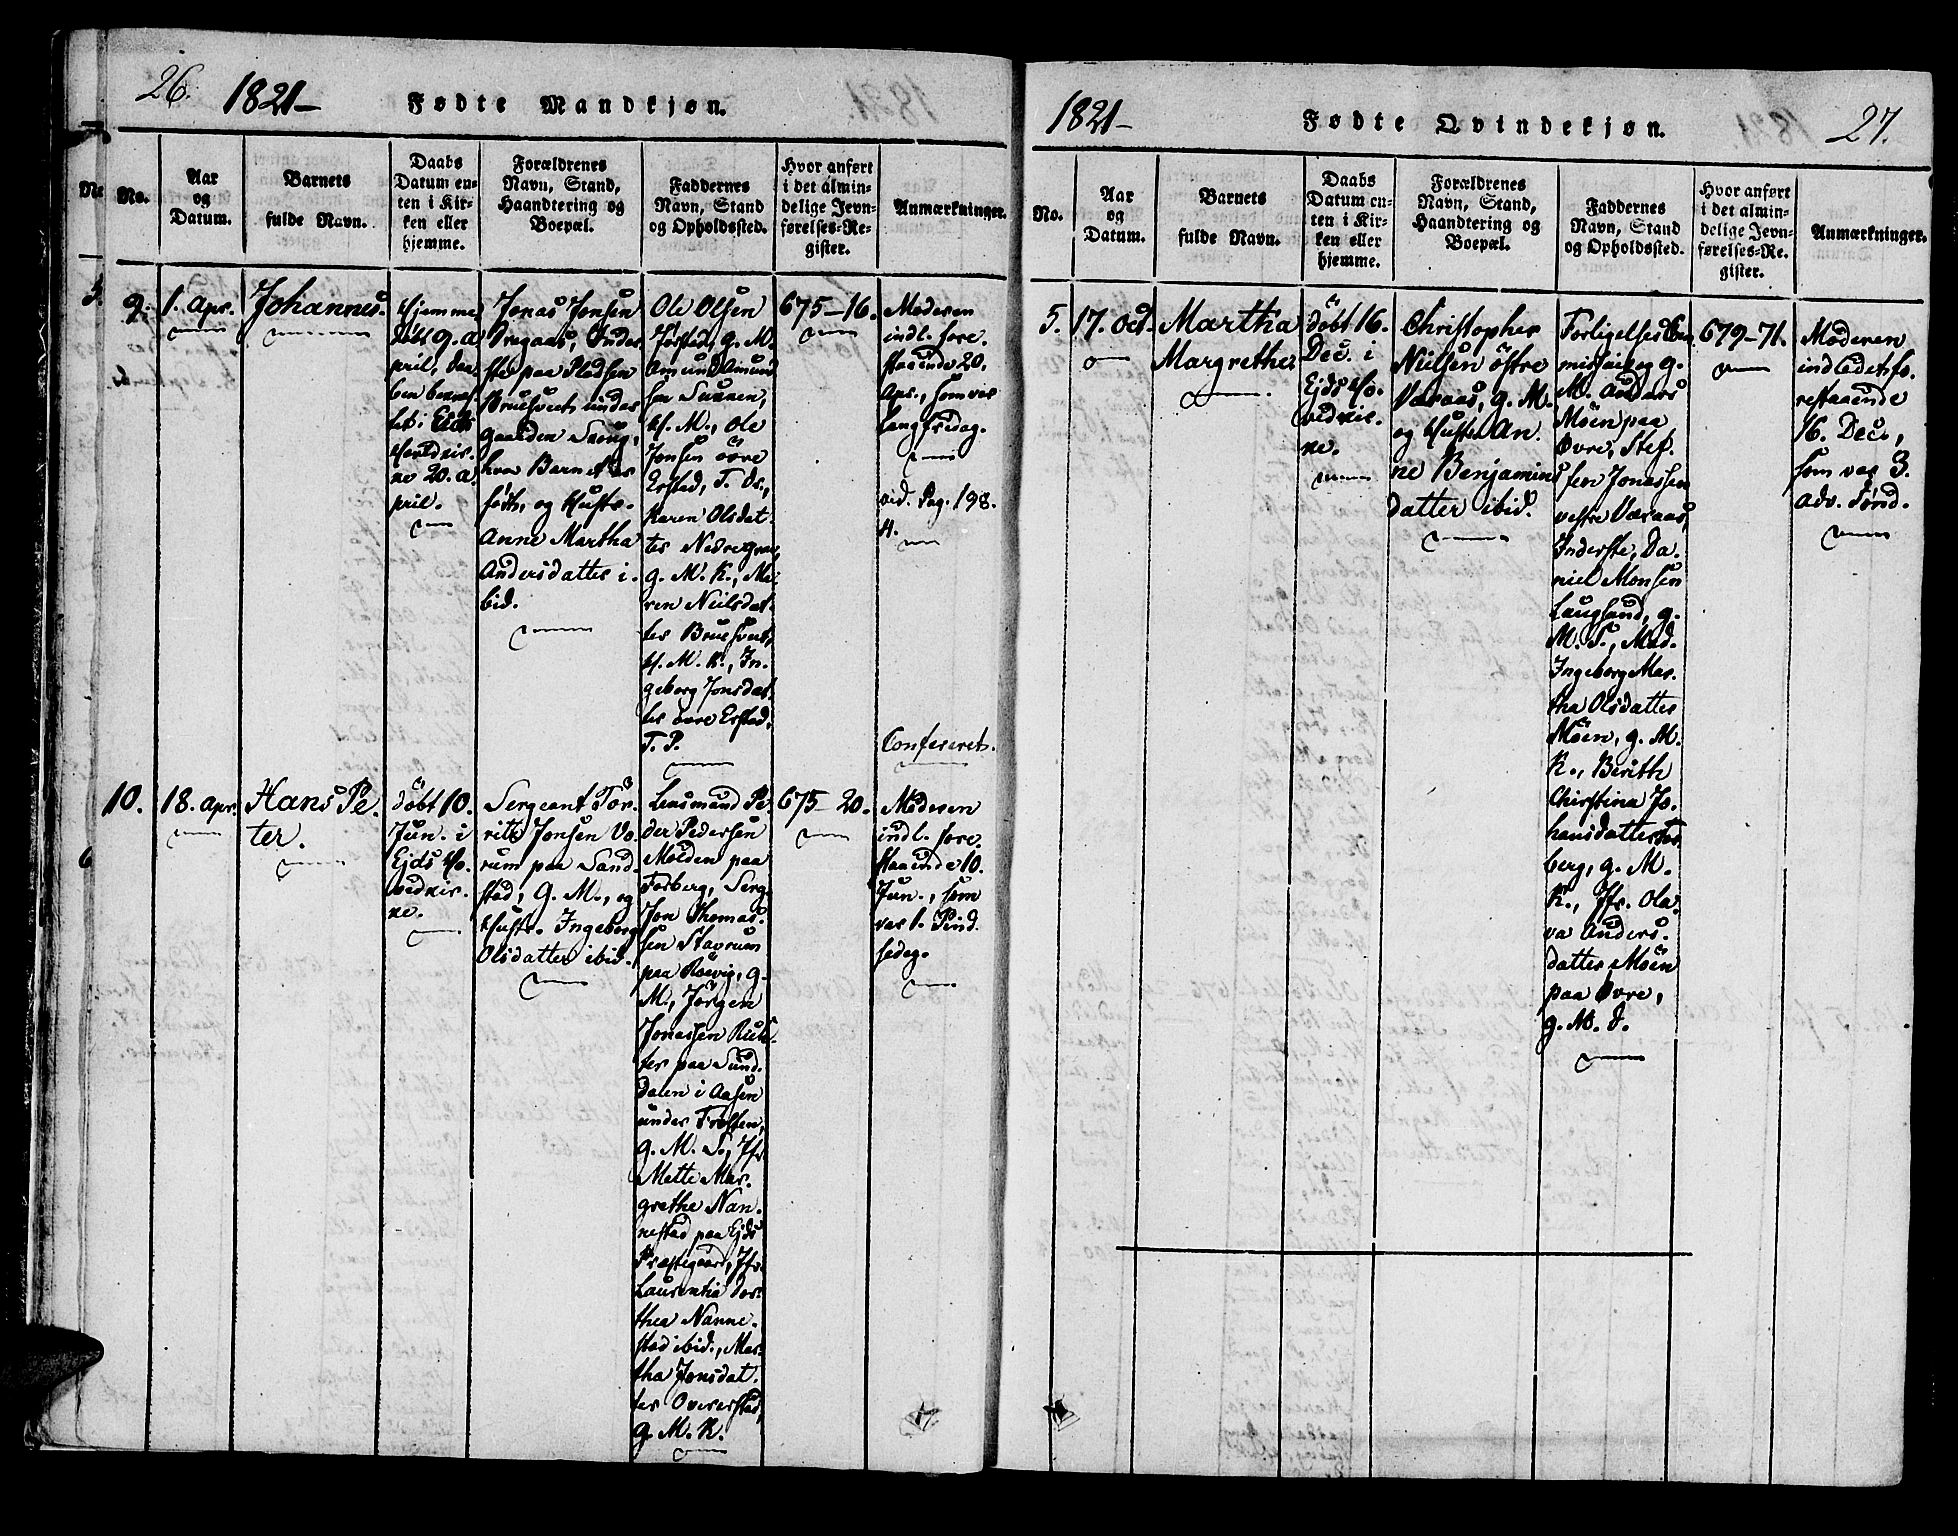 26.
1821-
Fødte Mandkjøn.
No.
Aar
og
Datum.
Barnets
fulde Navn.
Daabs
Datum en-
ten i Kir-
ken eller
hjemme.
Forældrenes
Navn, Stand,
Haandtering og
Boepæl.
Faddernes
Navn, Stand
og Opholdssted.
Hvor anført
i det almin-
delige Jevn-
førelses-Re-
gister.
Anmærkninger.
9.
1. Apr.
Johannes.
Hjemme
døbt 9. A
pril, der
ben
bet i Ejds
Hovedkir.
ke 20. A
pril.
Jonas Jonsen
Inder
ste paa Pladsen
Brusveet under
gaarden
hvor Barnet er
født, og Hustr.
Anne Martha
Andersdatter i.
bid.
Ole Olsen
g. M.
Amund Amund
sen
H. M., Ole
Jonsen övre
Erstad, T. Dr.,
Karen Olsdat
ter
g. M. K., Ma
ren Nielsdat
ter Brusveet,
H. M. K., In.
geborg Jonsdat
ter övre Erstad,
T. P.
675-16.
Moderen
indl. fore.
staaende 20.
Apr., som var
Langfredag.
vid. Pag. 198.
4.
Confereret.
10.
18. Apr.
Hans Pe
ter.
döbt 10.
Jun. i
Ejds Ho.
vedkir.
ke.
Sergeant Tör.
ris Jonsen Vo.
rum paa Sand
stad, G. M., og
Hustr. Ingeborg
Olsdatter ibid.
Lensmand Pe
der Pedersen
Molden paa
Forberg, Serg.
Jon Thomas.
sen Stavrum
paa Rösvig, g.
M., Jörgen
Jonassen Rich
ter paa Sund.
dalen i Aasen
under Frosten,
g. M. S., Jfr.
Mette Mar.
grethe Nan.
nestad paa Ejds
Præstegaard, Jfr.
Laurentia Dor
thea Nanne.
stad ibid., Mar
tha Jonsdat.
ter Overerstad,
g. M. K.
675-20.
Moderen
indl. fore.
staaende 10.
Jun., som
var 1. Pind
sedag.
1821-
Fødte Qvindekjøn.
27.
No.
Aar
og
Datum.
Barnets
fulde Navn.
Daabs
Datum en-
ten i Kir-
ken eller
hjemme.
Forældrenes
Navn, Stand,
Haandtering og
Boepæl.
Faddernes
Navn, Stand
og Opholdssted.
Hvor anført
i det almin-
delige Jevn-
førelses-Re-
gister.
Anmærkninger.
5.
17. Oct.
Martha
Margrethe.
döbt 16.
Dec. i
Ejds Ho.
vedkir.
ke.
Christopher
Nielsen östre
Væraas, g. M.
og Hustr. An.
ne Benjamins
datter ibid.
Forligelses Com
missair og g.
M. Anders
Möen paa
Övre, Stef.
fen Jonassen
vestre Væraas,
Inderste, Da.
niel Monsen
Laugsand, g.
M. S., Mad.
Ingeborg Mar.
tha Olsdatter
Möen, g. M.
K., Berith
Christina Jo.
hansdatter For
berg, g. M.
K., Jfr. Ola.
va Anders.
datter Möen
paa Övre,
g. M. d.
679-71.
Moderen
indledet fo.
restaaende
16. Dec.,
som var 3.
Adv. Sönd.